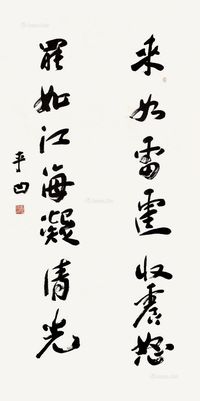 来如雷霆收震怒
罢如江海凝清光
平凹